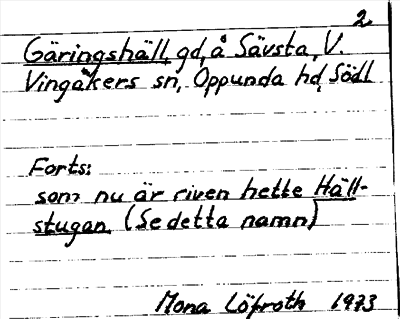 2
Gäringshäll, gd, å Sävsta, V.
Vingåkers sn, Oppunda hd, Södl
Forts:
som nu är riven hette Häll-
stugan (Se detta namn)
Mona Löfroth 1973